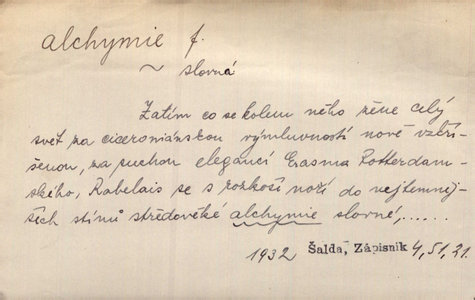 alchymie f.
~ slovná
Zatím co se kolem něho žene celý
svět za ciceroniánskou výmluvností nově vzkří-
šenou, za suchou elegancí Erasma Rotterdam-
ského, Rabelais se s rozkoší noří do nejtemněj-
ších stínů středověké alchymie slovné,......
1932 Šalda, Zápisník 4,51,21.